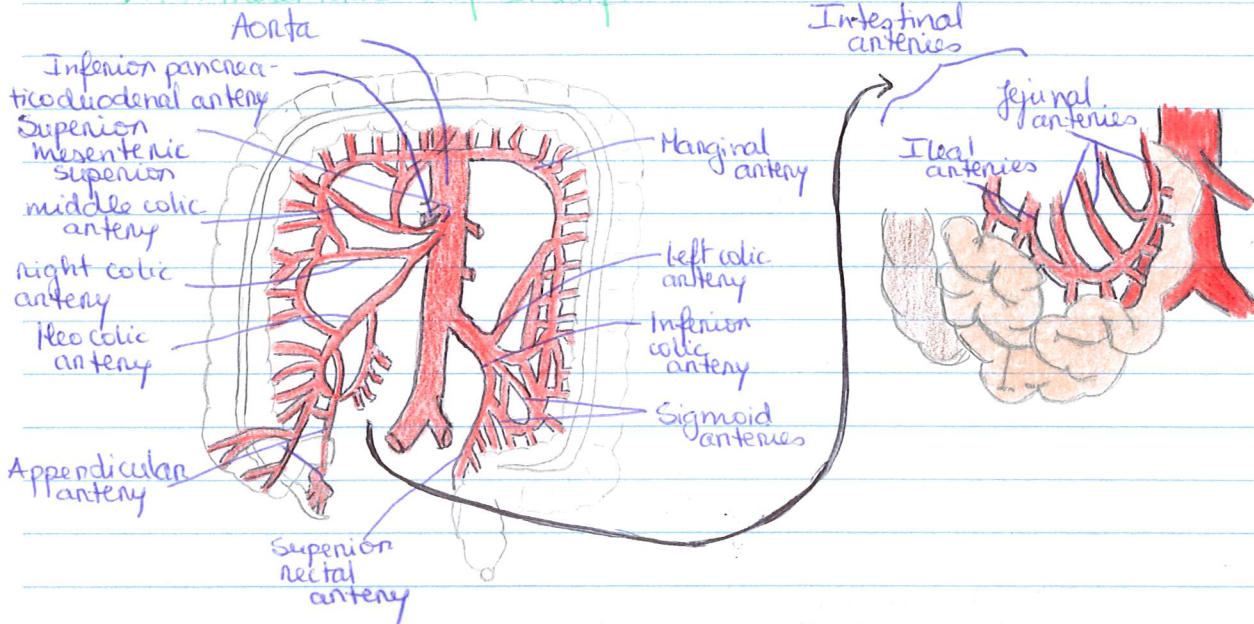 Aorta
Inferior pancrea-
ticoduodenal artery
Superior
mesenteric
superior
middle colic
artery
right colic
artery
Ileocolic
artery
Appendicular
artery
Superior
rectal
artery
Marginal
artery
Left colic
artery
Inferior
colic
artery
Sigmoid
arteries
Intestinal
arteries
Jejunal
arteries
Ileal
arteries